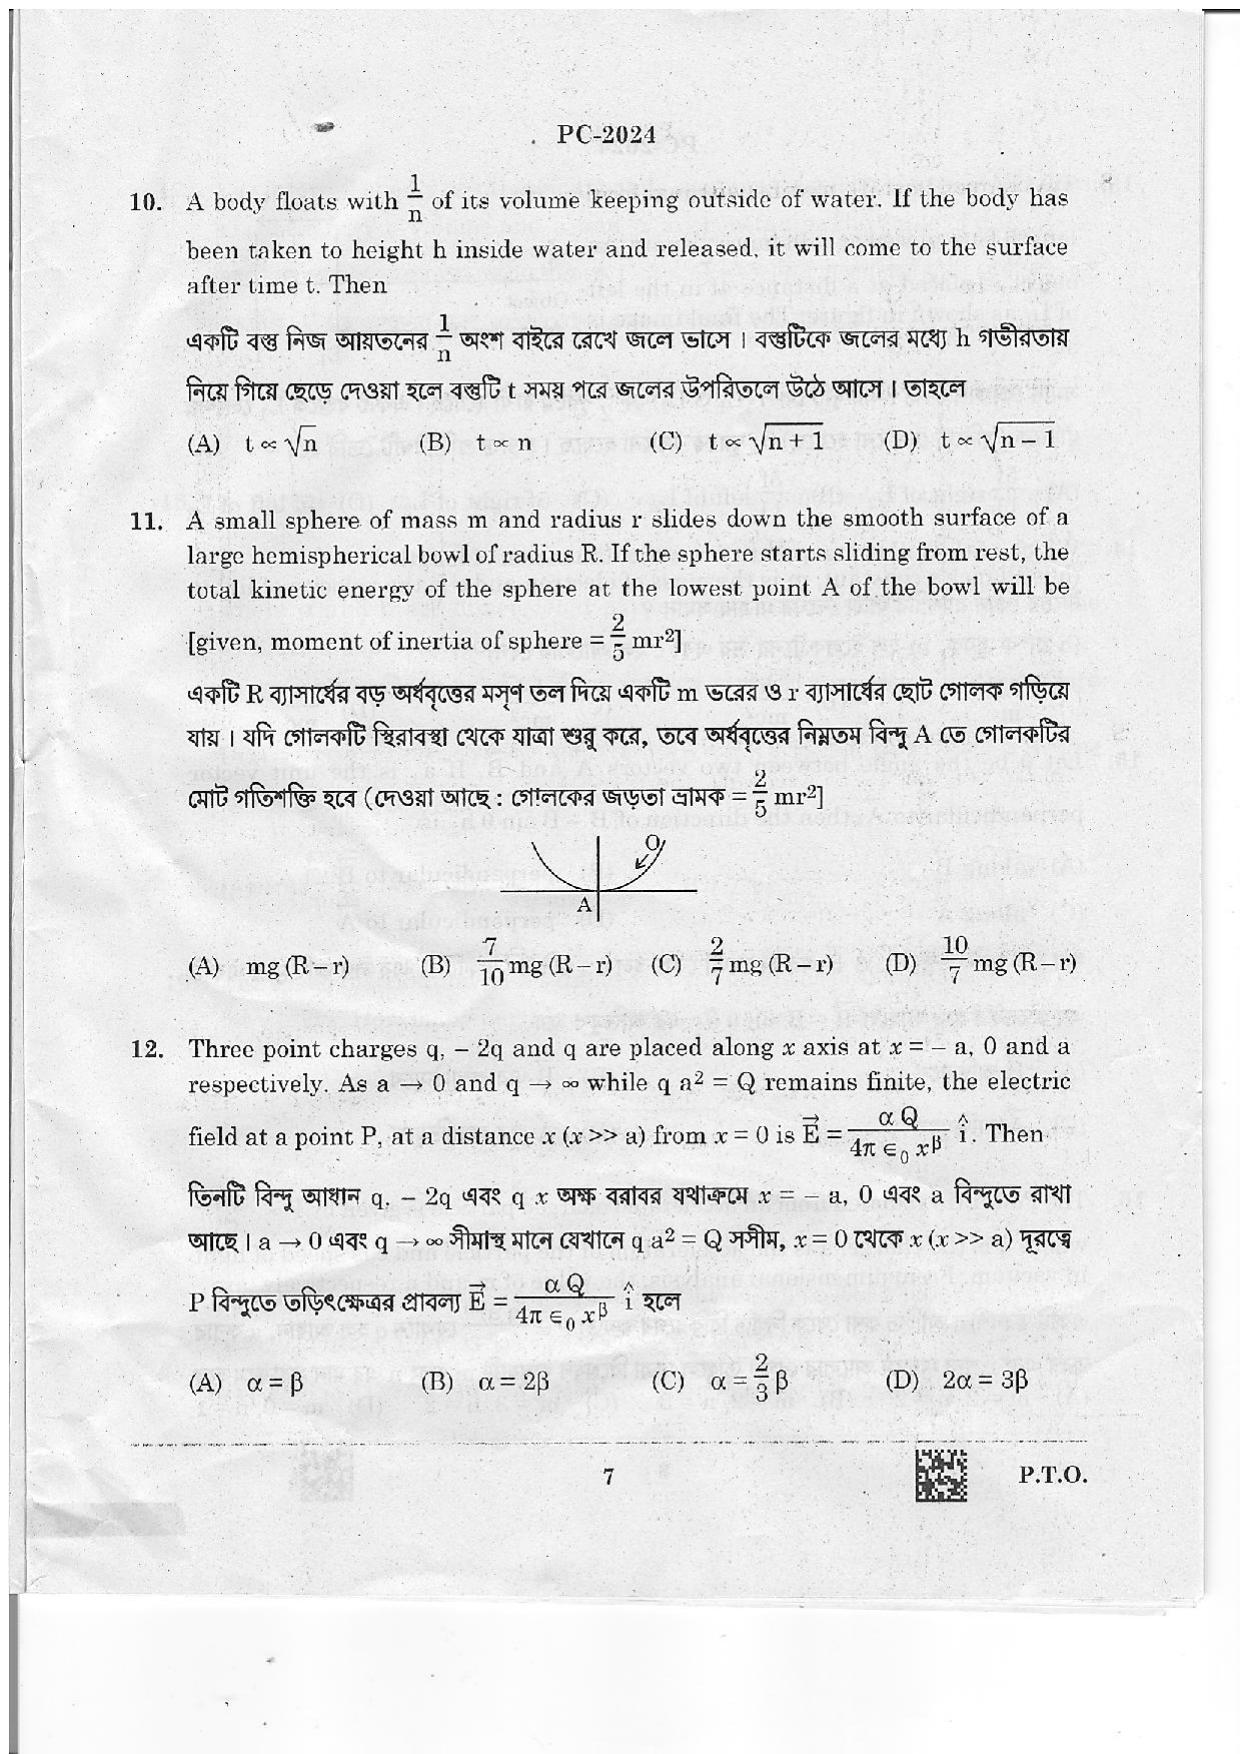 PC-2024
10. A body floats with 1/n of its volume keeping outside of water. If the body has
been taken to height h inside water and released, it will come to the surface
after time t. Then
একটি বস্তু নিজ আয়তনের 1/n অংশ বাইরে রেখে জলে ভাসে। বস্তুটিকে জলের মধ্যে h গভীরতায়
নিয়ে গিয়ে ছেড়ে দেওয়া হলে বস্তুটি t সময় পরে জলের উপরিতলে উঠে আসে। তাহলে
(A) t ∝ √n (B) t ∝ n (C) t ∝ √(n + 1) (D) t ∝ √(n – 1)
11. A small sphere of mass m and radius r slides down the smooth surface of a
large hemispherical bowl of radius R. If the sphere starts sliding from rest, the
total kinetic energy of the sphere at the lowest point A of the bowl will be
[given, moment of inertia of sphere = 2/5 mr²]
একটি R ব্যাসার্ধের বড় অর্ধবৃত্তের মসৃণ তল দিয়ে একটি m ভরের ও r ব্যাসার্ধের ছোট গোলক গড়িয়ে
যায়। যদি গোলকটি স্থিরাবস্থা থেকে যাত্রা শুরু করে, তবে অর্ধবৃত্তের নিম্নতম বিন্দু A তে গোলকটির
মোট গতিশক্তি হবে (দেওয়া আছে : গোলকের জড়তা ভ্রামক = 2/5 mr²]
A
(A) mg (R – r) (B) 7/10 mg (R – r) (C) 2/7 mg (R – r) (D) 10/7 mg (R – r)
12. Three point charges q, – 2q and q are placed along x axis at x = – a, 0 and a
respectively. As a → 0 and q → ∞ while q a² = Q remains finite, the electric
field at a point P, at a distance x (x >> a) from x = 0 is E⃗ = αQ/(4π∈₀x^β) î. Then
তিনটি বিন্দু আধান q, – 2q এবং q x অক্ষ বরাবর যথাক্রমে x = – a, 0 এবং a বিন্দুতে রাখা
আছে। a → 0 এবং q → ∞ সীমাস্থ মানে যেখানে q a² = Q সসীম, x = 0 থেকে x (x >> a) দূরত্বে
P বিন্দুতে তড়িৎক্ষেত্রর প্রাবল্য E⃗ = αQ/(4π∈₀x^β) î হলে
(A) α = β (B) α = 2β (C) α = 2/3 β (D) 2α = 3β
7
P.T.O.